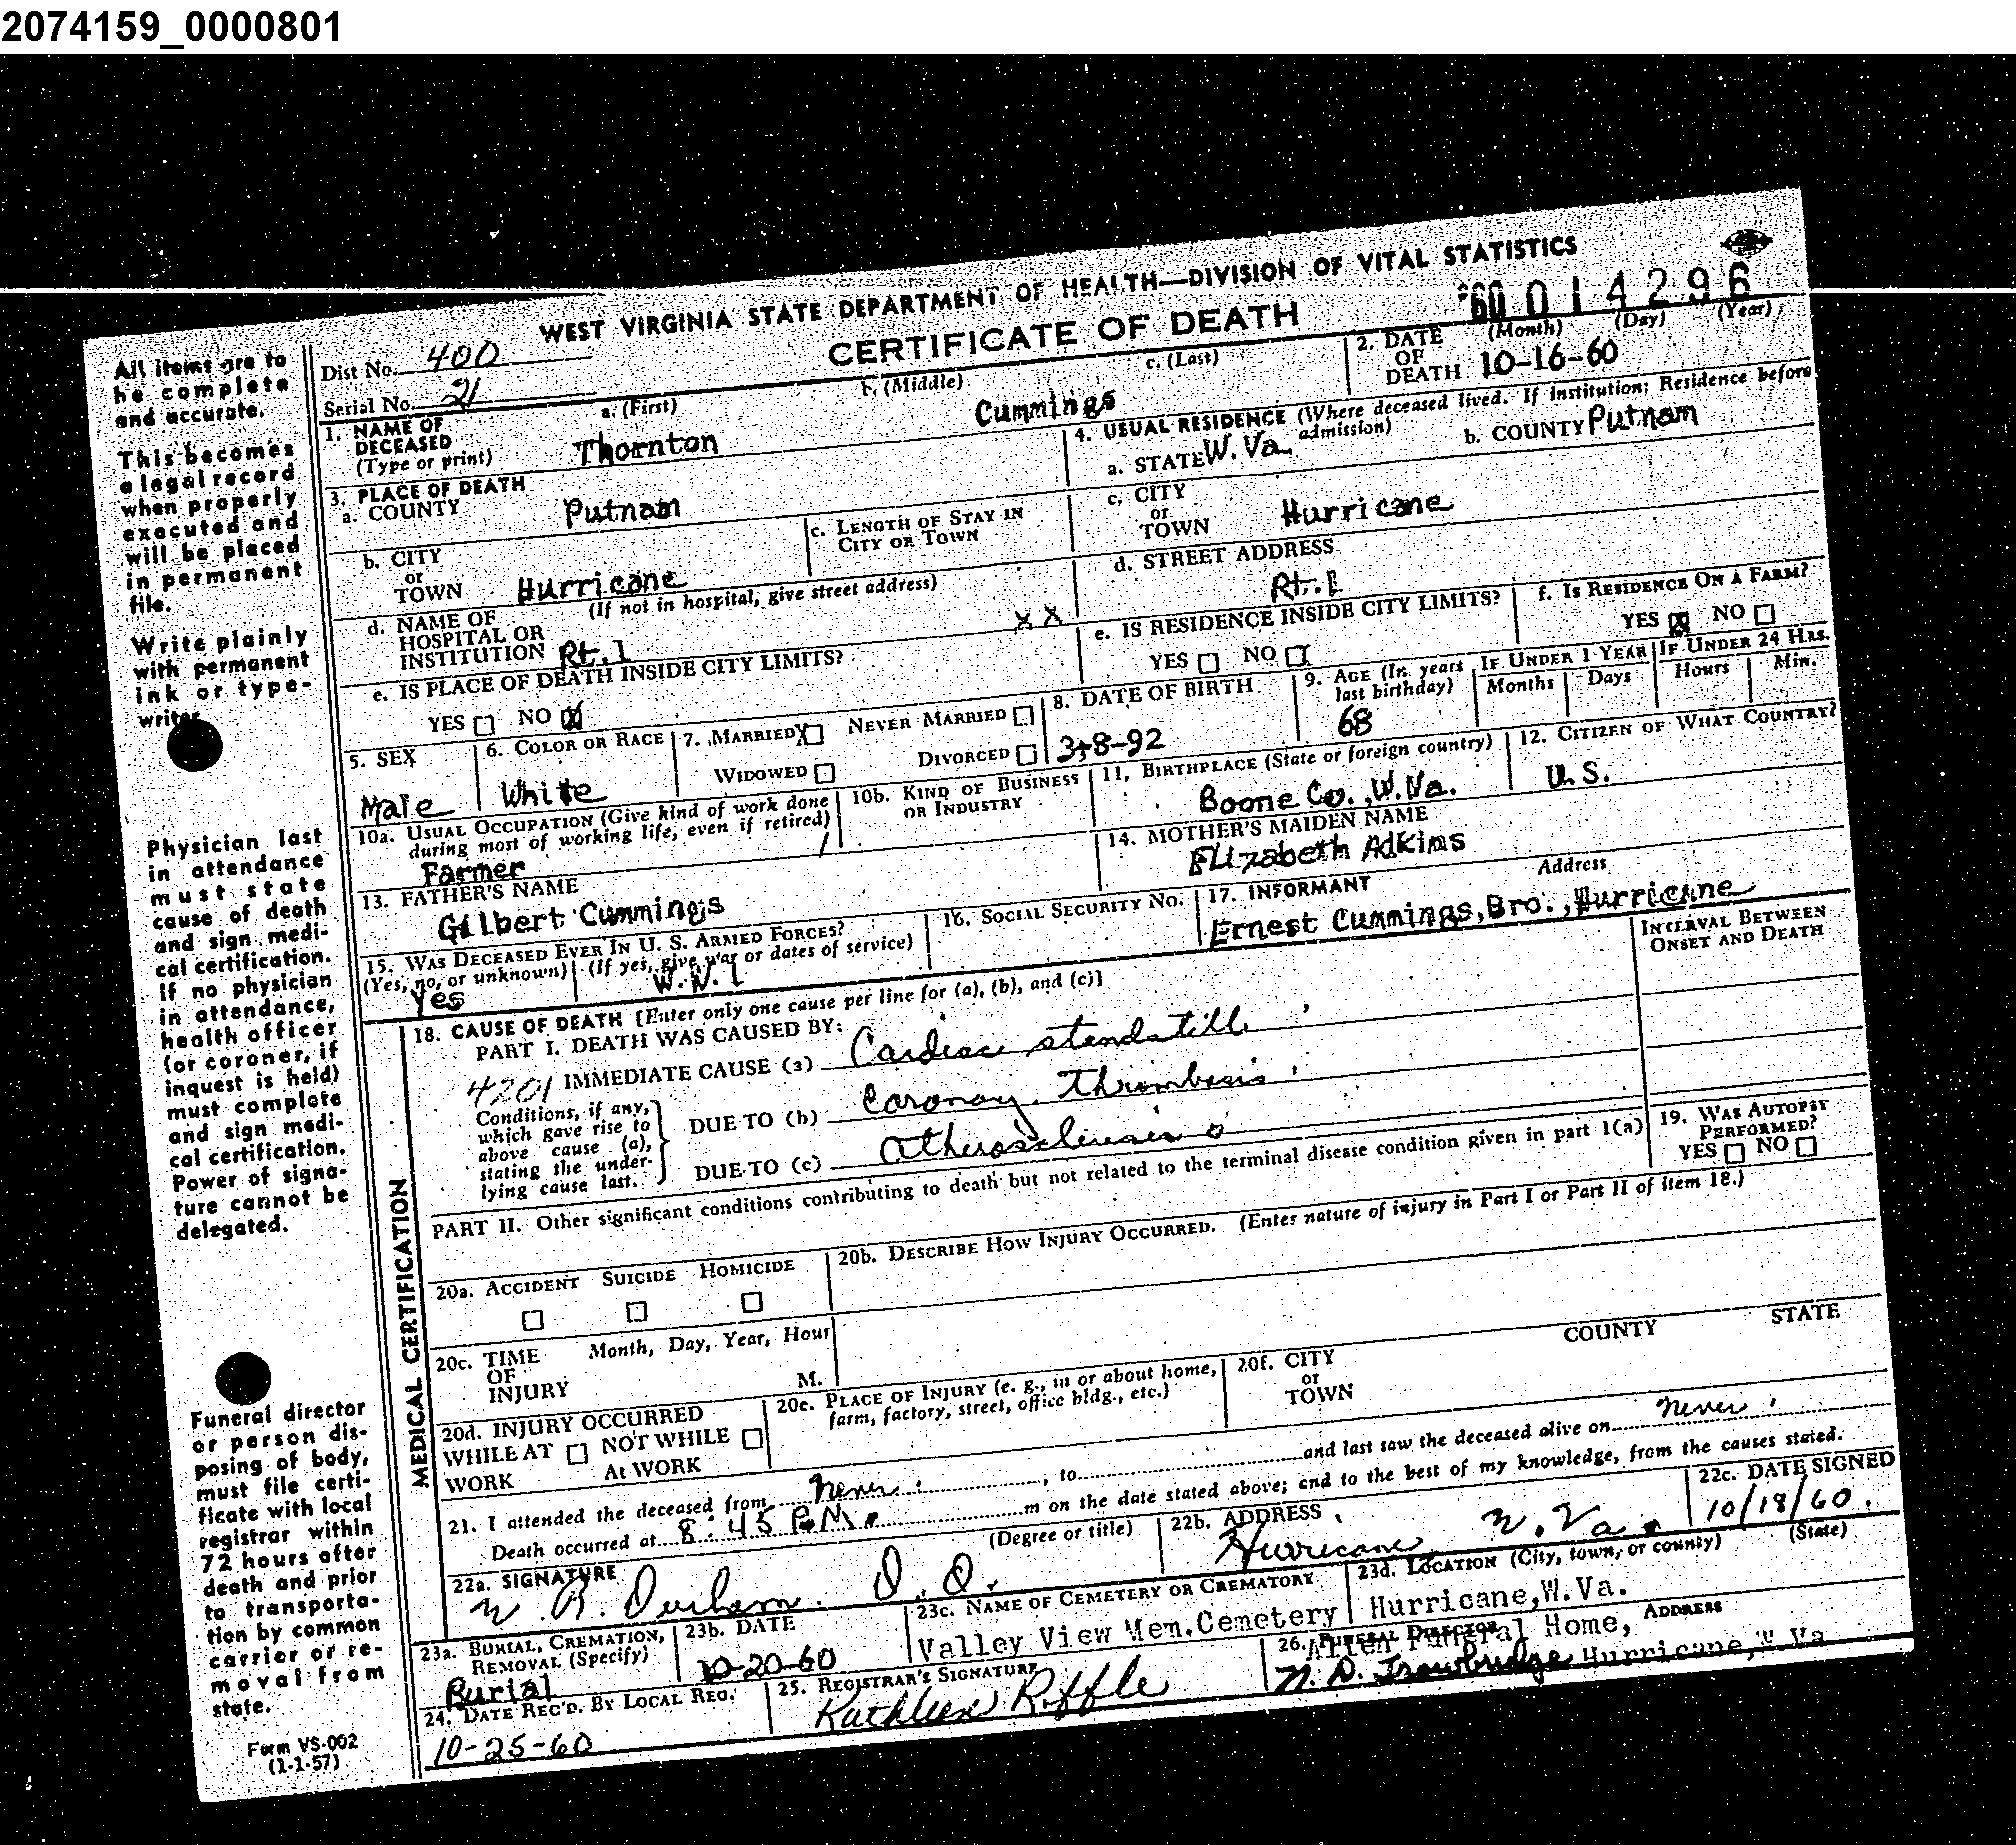 2074159_0000801
WEST VIRGINIA STATE DEPARTMENT OF HEALTH—DIVISION OF VITAL STATISTICS
CERTIFICATE OF DEATH
60 014296
All items are to
be complete
and accurate.
This becomes
a legal record
when properly
executed and
will be placed
in permanent
file.
Write plainly
with permanent
ink or type-
writer
Physician last
in attendance
must state
cause of death
and sign medi-
cal certification.
If no physician
in attendance,
health officer
(or coroner, if
inquest is held)
must complete
and sign medi-
cal certification.
Power of signa-
ture cannot be
delegated.
Funeral director
or person dis-
posing of body,
must file certi-
ficate with local
registrar within
72 hours after
death and prior
to transporta-
tion by common
carrier or re-
moval from
state.
Form VS-002
(1-1-57)
Dist No. 400
Serial No. 21
1. NAME OF DECEASED (Type or print)
a. (First) b. (Middle) c. (Last)
Thornton Cummings
2. DATE OF DEATH (Month) (Day) (Year)
10-16-60
3. PLACE OF DEATH
a. COUNTY Putnam
b. CITY or TOWN Hurricane
c. LENGTH OF STAY IN CITY OR TOWN
d. NAME OF HOSPITAL OR INSTITUTION (If not in hospital, give street address)
Rt. 1 XX
e. IS PLACE OF DEATH INSIDE CITY LIMITS?
YES NO X
4. USUAL RESIDENCE (Where deceased lived. If institution; Residence before admission)
a. STATE W. Va. b. COUNTY Putnam
c. CITY or TOWN Hurricane
d. STREET ADDRESS
Rt. 1
e. IS RESIDENCE INSIDE CITY LIMITS?
YES NO
f. IS RESIDENCE ON A FARM?
YES X NO
5. SEX
Male
6. COLOR OR RACE
White
7. MARRIED X NEVER MARRIED
WIDOWED DIVORCED
8. DATE OF BIRTH
3-8-92
9. AGE (In years last birthday)
68
IF UNDER 1 YEAR
Months Days
IF UNDER 24 HRS.
Hours Min.
10a. USUAL OCCUPATION (Give kind of work done during most of working life, even if retired)
Farmer
10b. KIND OF BUSINESS OR INDUSTRY
11. BIRTHPLACE (State or foreign country)
Boone Co., W.Va.
12. CITIZEN OF WHAT COUNTRY?
U. S.
13. FATHER'S NAME
Gilbert Cummings
14. MOTHER'S MAIDEN NAME
Elizabeth Adkins
15. WAS DECEASED EVER IN U. S. ARMED FORCES?
(Yes, no, or unknown) (If yes, give war or dates of service)
Yes W.W. 1
16. SOCIAL SECURITY NO.
17. INFORMANT Address
Ernest Cummings, Bro., Hurricane
18. CAUSE OF DEATH [Enter only one cause per line for (a), (b), and (c)]
INTERVAL BETWEEN ONSET AND DEATH
PART I. DEATH WAS CAUSED BY:
4201 IMMEDIATE CAUSE (a) Cardiac standstill
Conditions, if any, which gave rise to above cause (a), stating the underlying cause last.
DUE TO (b) Coronary thrombosis
DUE TO (c)
PART II. Other significant conditions contributing to death but not related to the terminal disease condition given in part I(a)
19. WAS AUTOPSY PERFORMED?
YES NO
20a. ACCIDENT SUICIDE HOMICIDE
20b. DESCRIBE HOW INJURY OCCURRED. (Enter nature of injury in Part I or Part II of item 18.)
20c. TIME OF INJURY Month, Day, Year, Hour
M.
20d. INJURY OCCURRED
WHILE AT WORK NOT WHILE AT WORK
20e. PLACE OF INJURY (e. g., in or about home, farm, factory, street, office bldg., etc.)
20f. CITY or TOWN COUNTY STATE
21. I attended the deceased from never, to and last saw the deceased alive on never
Death occurred at 8:45 P.M. m on the date stated above; and to the best of my knowledge, from the causes stated.
22a. SIGNATURE (Degree or title)
W. B. Durham D.O.
22b. ADDRESS
Hurricane W. Va.
22c. DATE SIGNED
10/18/60.
23a. BURIAL, CREMATION, REMOVAL (Specify)
Burial
23b. DATE
10-20-60
23c. NAME OF CEMETERY OR CREMATORY
Valley View Mem. Cemetery
23d. LOCATION (City, town, or county) (State)
Hurricane, W. Va.
24. DATE REC'D. BY LOCAL REG.
10-25-60
25. REGISTRAR'S SIGNATURE
Kathleen Riffle
26. FUNERAL DIRECTOR ADDRESS
Allen Funeral Home,
N. D. Trowbridge Hurricane, W. Va
MEDICAL CERTIFICATION